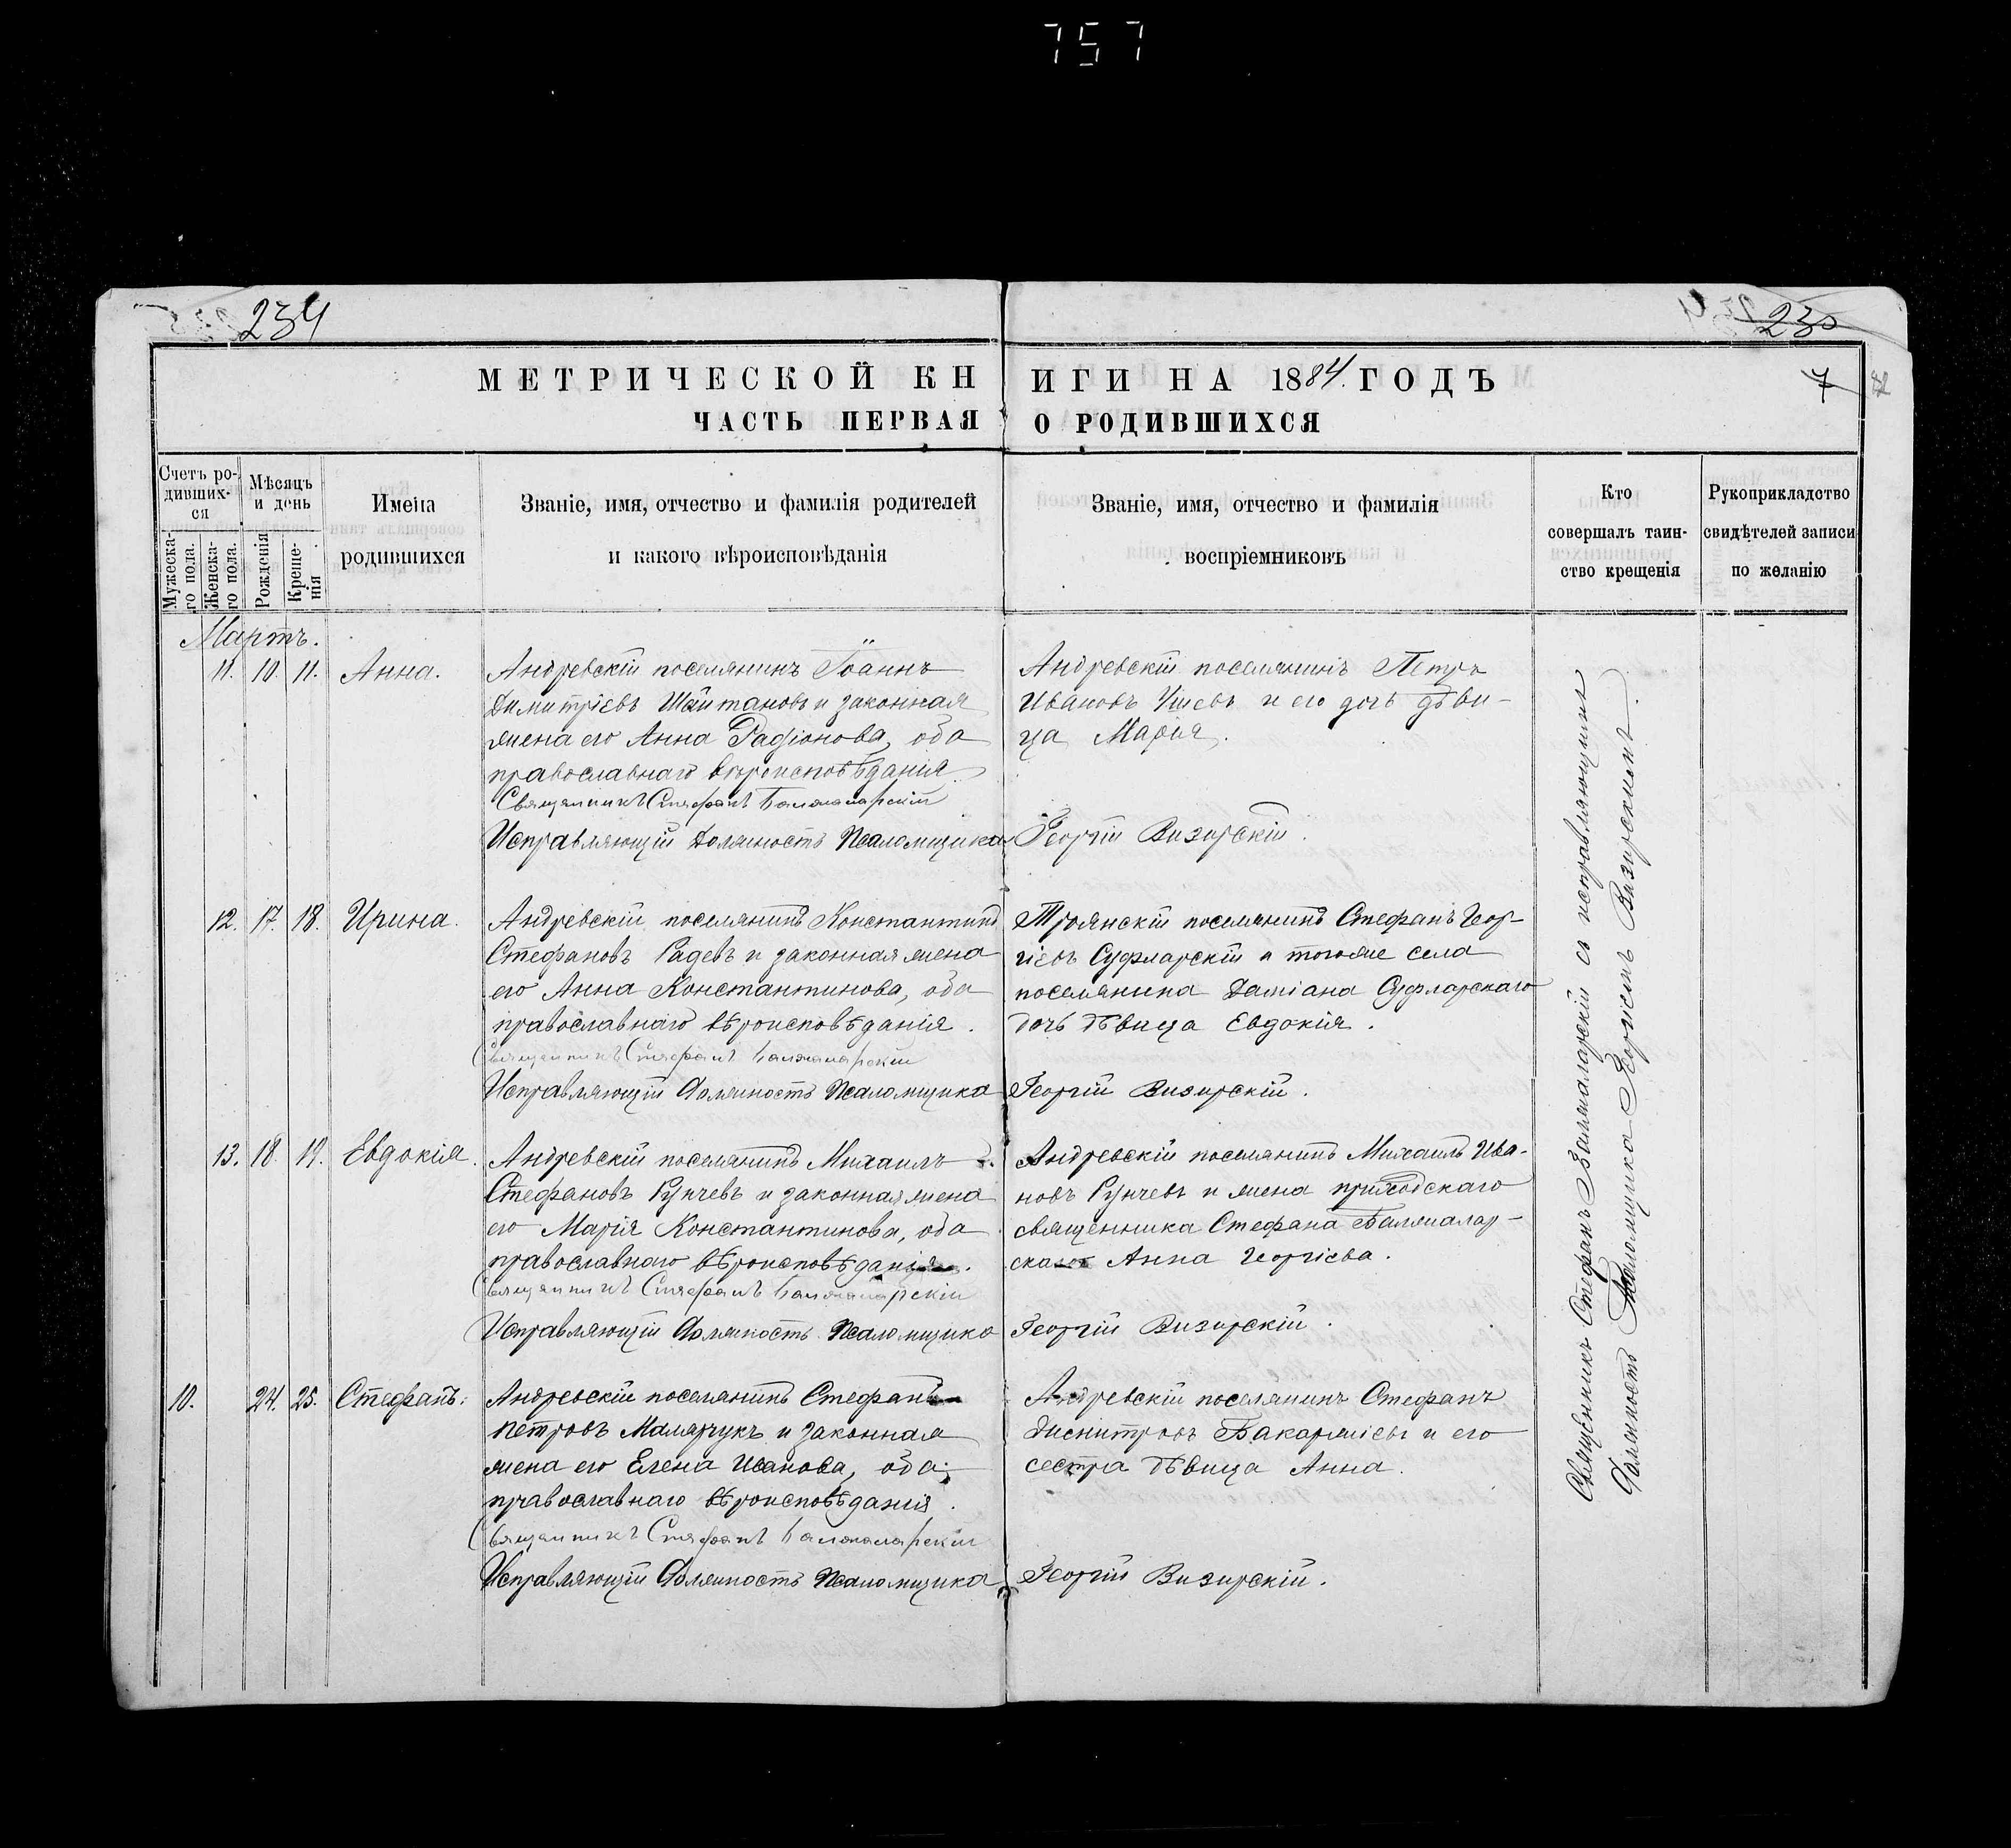 757
234
23
МЕТРИЧЕСКОЙ КНИГИ НА 1884. ГОДЪ
7
ЧАСТЬ ПЕРВАЯ О РОДИВШИХСЯ
Счетъ родившихся
Мужеска-го пола.
Женска-го пола.
Мѣсяцъ и день
Рожденія
Креще-нія
Имена
родившихся
Званіе, имя, отчество и фамилія родителей
и какого вѣроисповѣданія
Званіе, имя, отчество и фамилія
воспріемниковъ
Кто
совершалъ таин-
ство крещенія
Рукоприкладство
свидѣтелей записи
по желанію
Мартъ.
11. 10. 11. Анна.
Андревскій поселянинъ Іоаннъ
Димитріевъ Шайтановъ и законная
жена его Анна Радіонова, оба
православнаго вѣроисповѣданія.
Священникъ Стефанъ Балжаларскій
Исправляющій Должность Псаломщика Георгій Визирскій.
Андревскій поселянинъ Петръ
Ивановъ и его дочь дѣви-
ца Марія.
12. 17. 18. Ирина.
Андревскій поселянинъ Константинъ
Стефановъ Радевъ и законная жена
его Анна Константинова, оба
православнаго вѣроисповѣданія.
Священникъ Стефанъ Балжаларскій
Исправляющій Должность Псаломщика Георгій Визирскій.
Троянскій поселянинъ Стефанъ Геор-
гіевъ Суфларскій и тогоже села
поселянина Даміана Суфларскаго
дочь дѣвица Евдокія.
13. 18. 19. Евдокія.
Андревскій поселянинъ Михаилъ
Стефановъ Рунчевъ и законная жена
его Марія Константинова, оба
православнаго вѣроисповѣданія.
Священникъ Стефанъ Балжаларскій
Исправляющій Должность Псаломщика Георгій Визирскій.
Андревскій поселянинъ Михаилъ Ива-
новъ Рунчевъ и жена приходскаго
священника Стефана Балжалар-
скаго Анна Георгіева.
10. 24. 25. Стефанъ.
Андревскій поселянинъ Стефанъ
Петровъ Малярчукъ и законная
жена его Елена Иванова, оба
православнаго вѣроисповѣданія.
Священникъ Стефанъ Балжаларскій
Исправляющій Должность Псаломщика Георгій Визирскій.
Андревскій поселянинъ Стефанъ
Димитровъ и его
сестра дѣвица Анна.
Священникъ Стефанъ Балжаларскій съ исправляющимъ
Должность Псаломщика Георгіемъ Визирскимъ.